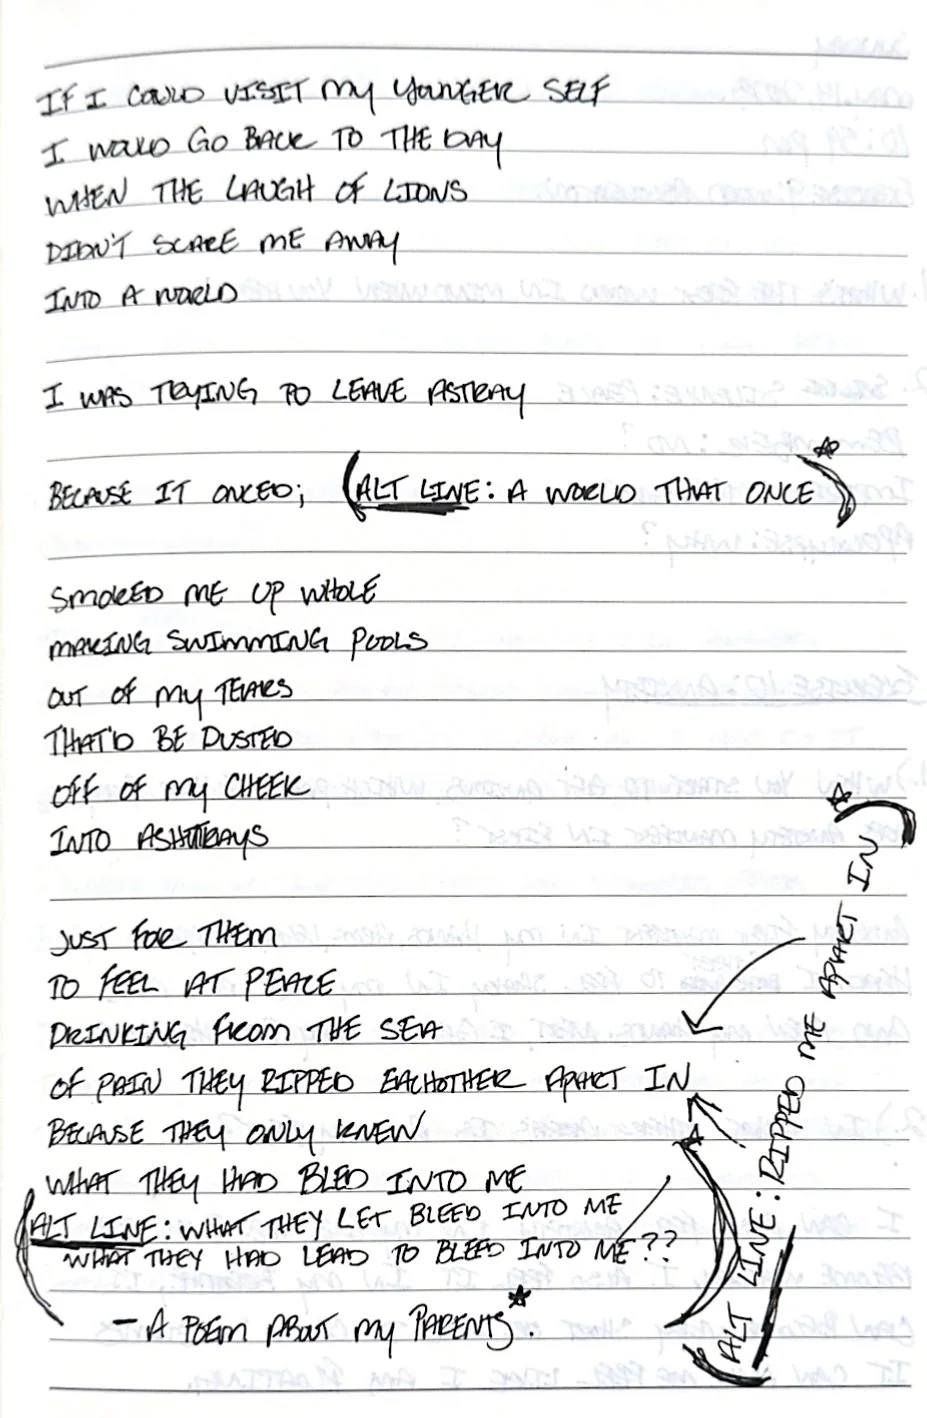 IF I COULD VISIT MY YOUNGER SELF
I WOULD GO BACK TO THE DAY
WHEN THE LAUGH OF LIONS
DIDN'T SCARE ME AWAY
INTO A WORLD
I WAS TRYING TO LEAVE ASTRAY
BECAUSE IT ONCED; (ALT LINE: A WORLD THAT ONCE)
SMOKED ME UP WHOLE
MAKING SWIMMING POOLS
OUT OF MY TEARS
THAT'D BE DUSTED
OFF OF MY CHEEK
INTO ASHTRAYS
JUST FOR THEM
TO FEEL AT PEACE
DRINKING FROM THE SEA
OF PAIN THEY RIPPED EACHOTHER APART IN
BECAUSE THEY ONLY KNEW
WHAT THEY HAD BLED INTO ME
(ALT LINE: WHAT THEY LET BLEED INTO ME
WHAT THEY HAD LEAD TO BLEED INTO ME??
- A POEM ABOUT MY PARENTS.
(ALT LINE: RIPPED ME APART IN)